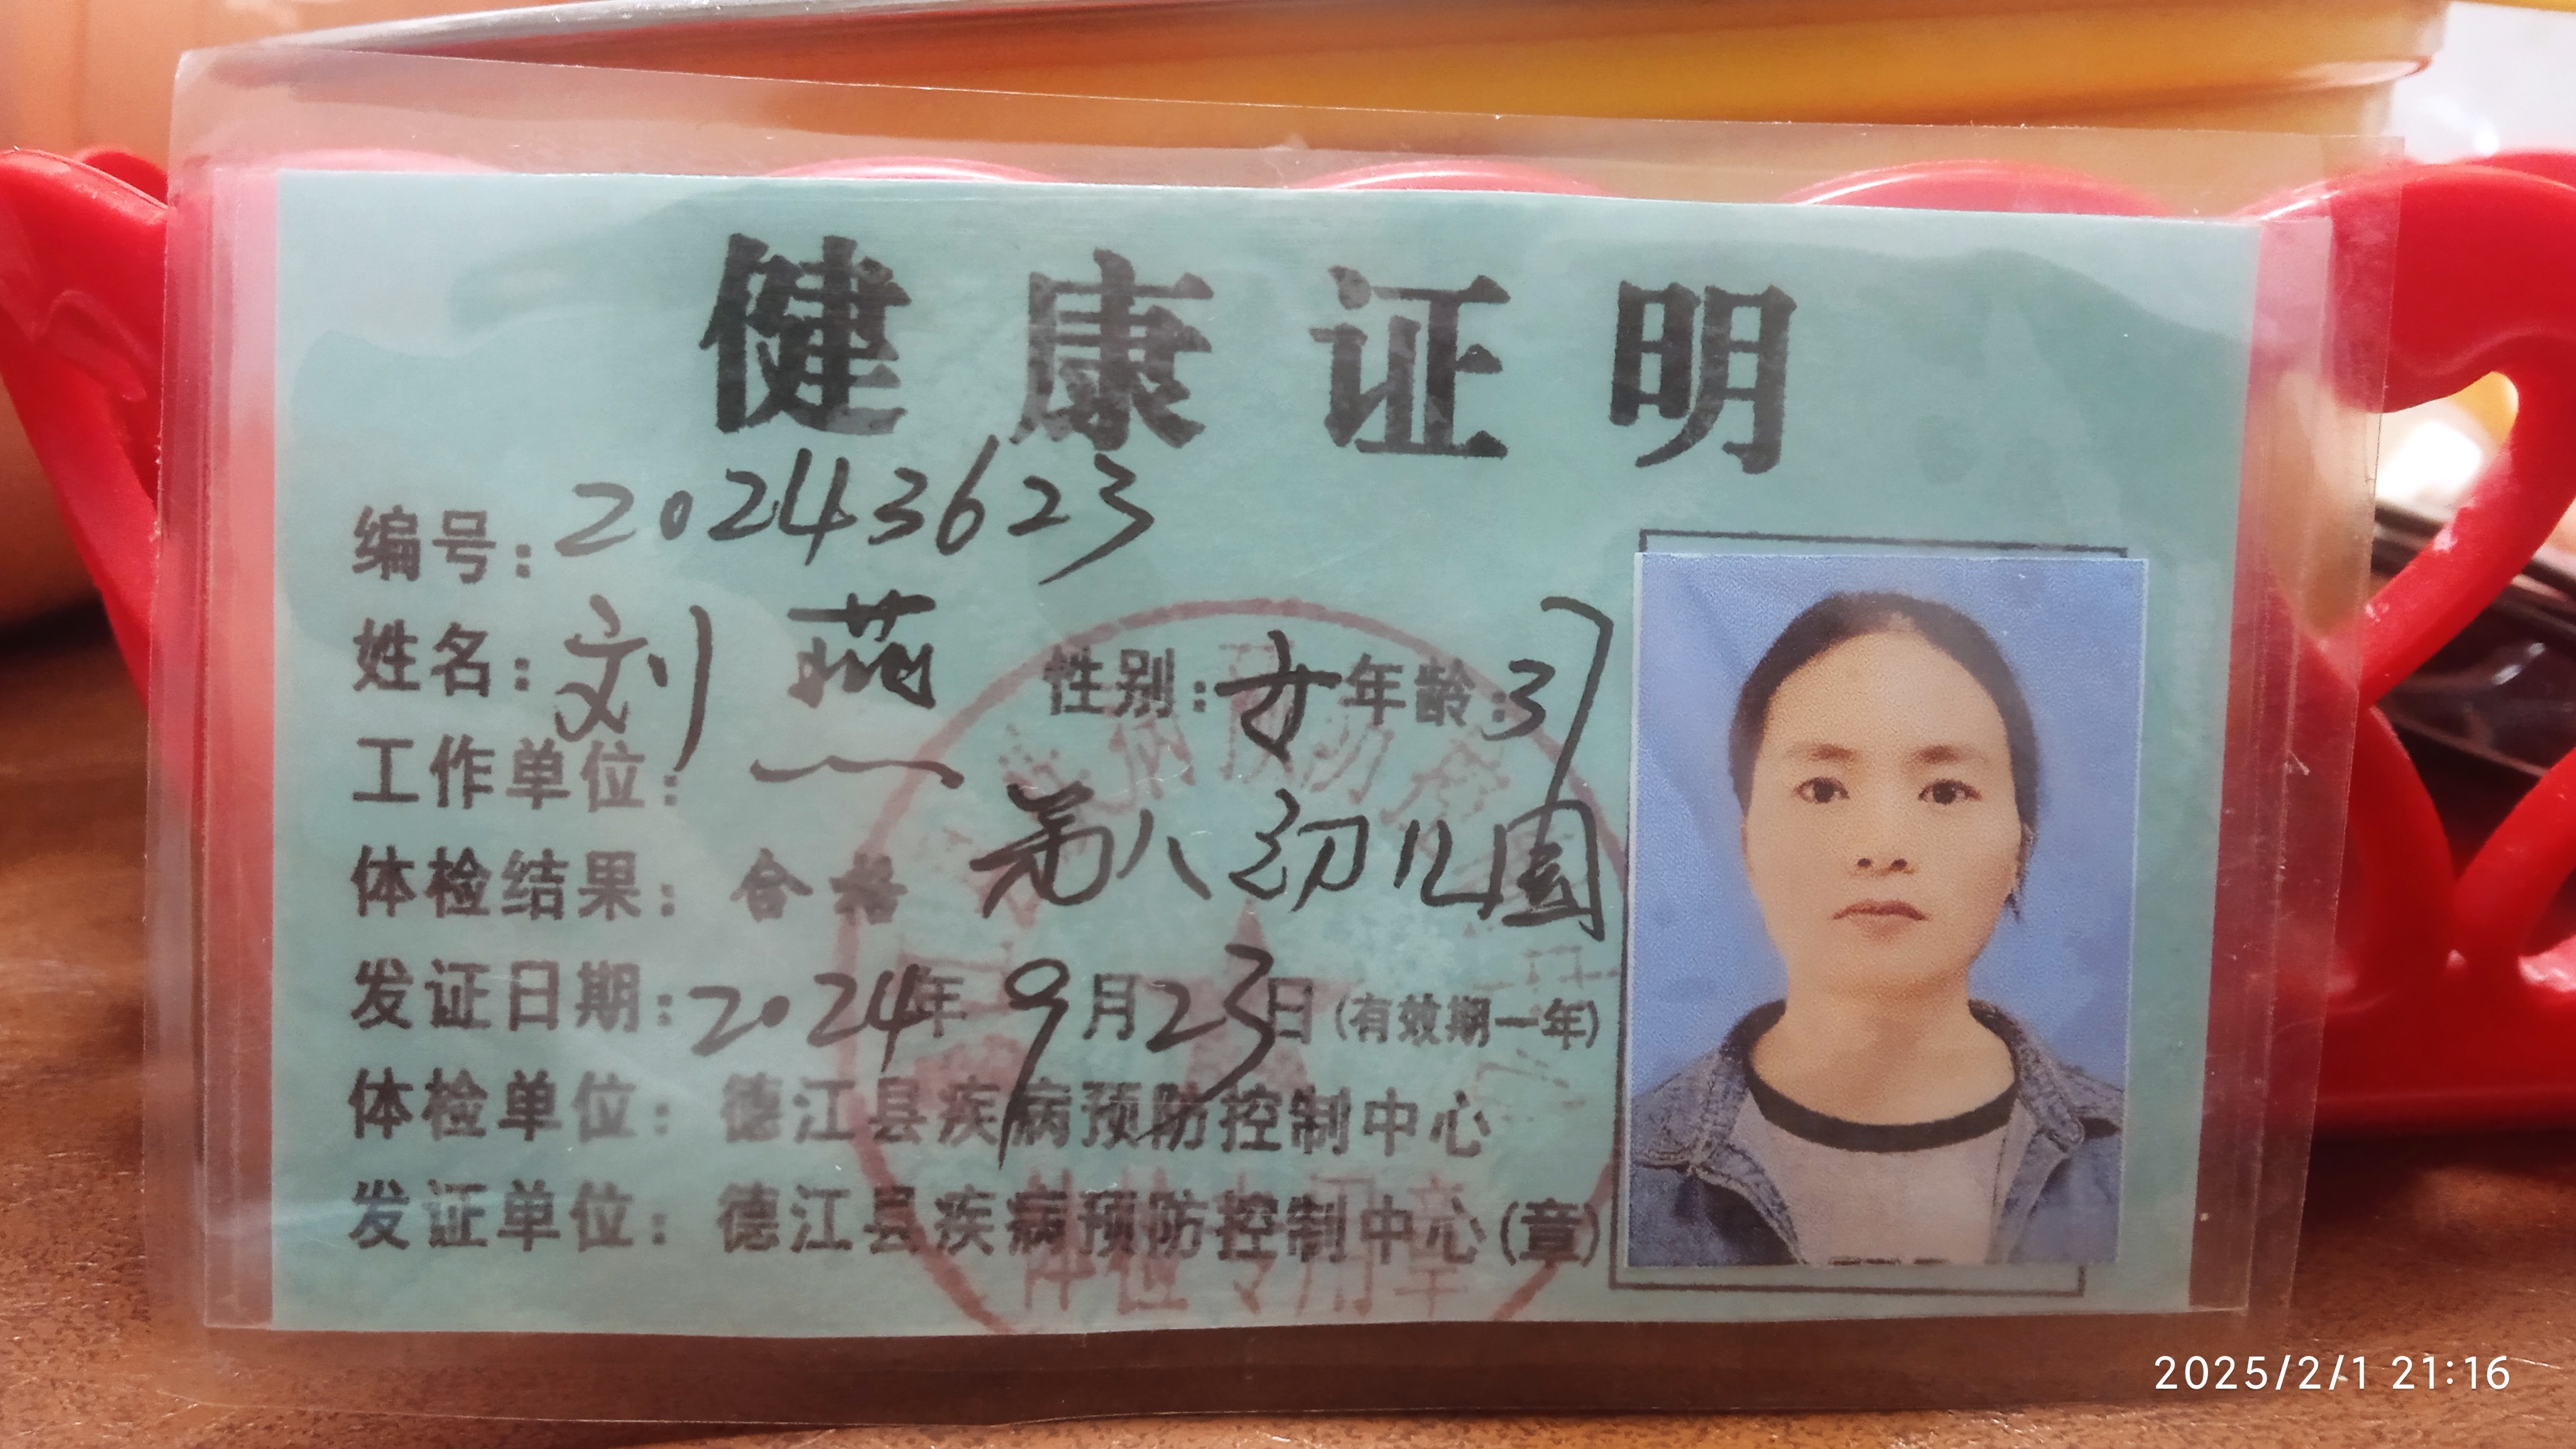 健康证明
编号：20243623
姓名：刘燕 性别：女 年龄：37
工作单位：第八幼儿园
体检结果：合格
发证日期：2024年9月23日（有效期一年）
体检单位：德江县疾病预防控制中心
发证单位：德江县疾病预防控制中心（章）
体检专用章
2025/2/1 21:16